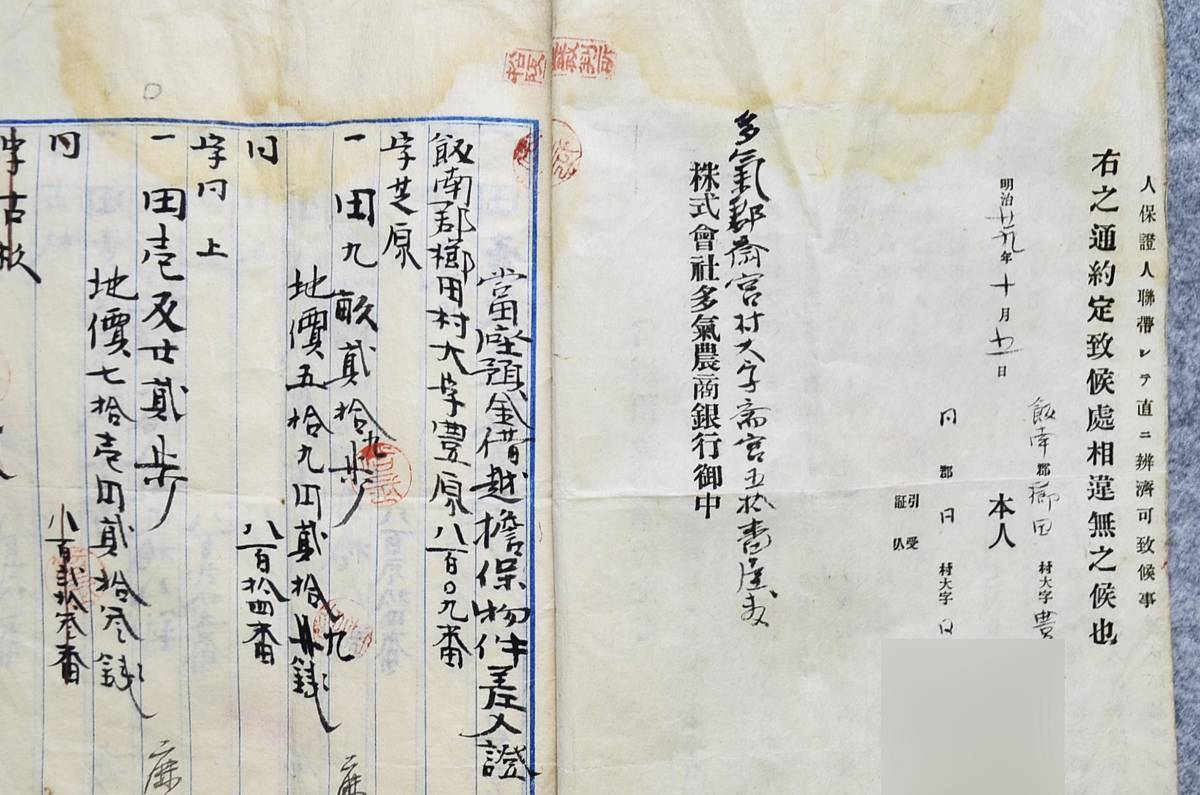 人保證人聯帶シテ直ニ辨濟可致候事
右之通約定致候處相違無之候也
明治廿九年十月十一日
飯南郡櫛田村大字豊
本人
同郡同村大字同
引受
証人
多氣郡齋宮村大字斎宮五拾番屋敷
株式會社多氣農商銀行御中
當座預金借越擔保物件差入證
飯南郡櫛田村大字豊原八百〇九番
字芝原
一田九畝貳拾九歩
地價五拾九円貳拾九銭
同 八百拾四番
字同上
一田壱反廿貳歩
地價七拾壱円貳拾参銭
同 八百貳拾参番
字古